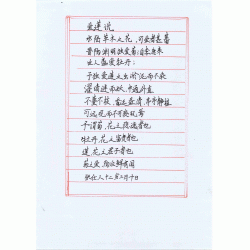 爱莲说
水陆草木之花，可爱者甚蕃
晋陶渊明独爱菊；自李唐来
世人甚爱牡丹；
予独爱莲之出淤泥而不染
濯清涟而不妖，中通外直
不蔓不枝，香远益清，亭亭静植
可远观而不可亵玩焉
予谓菊，花之隐逸者也
牡丹，花之富贵者也
莲，花之君子者也
菊之爱，陶后鲜有闻